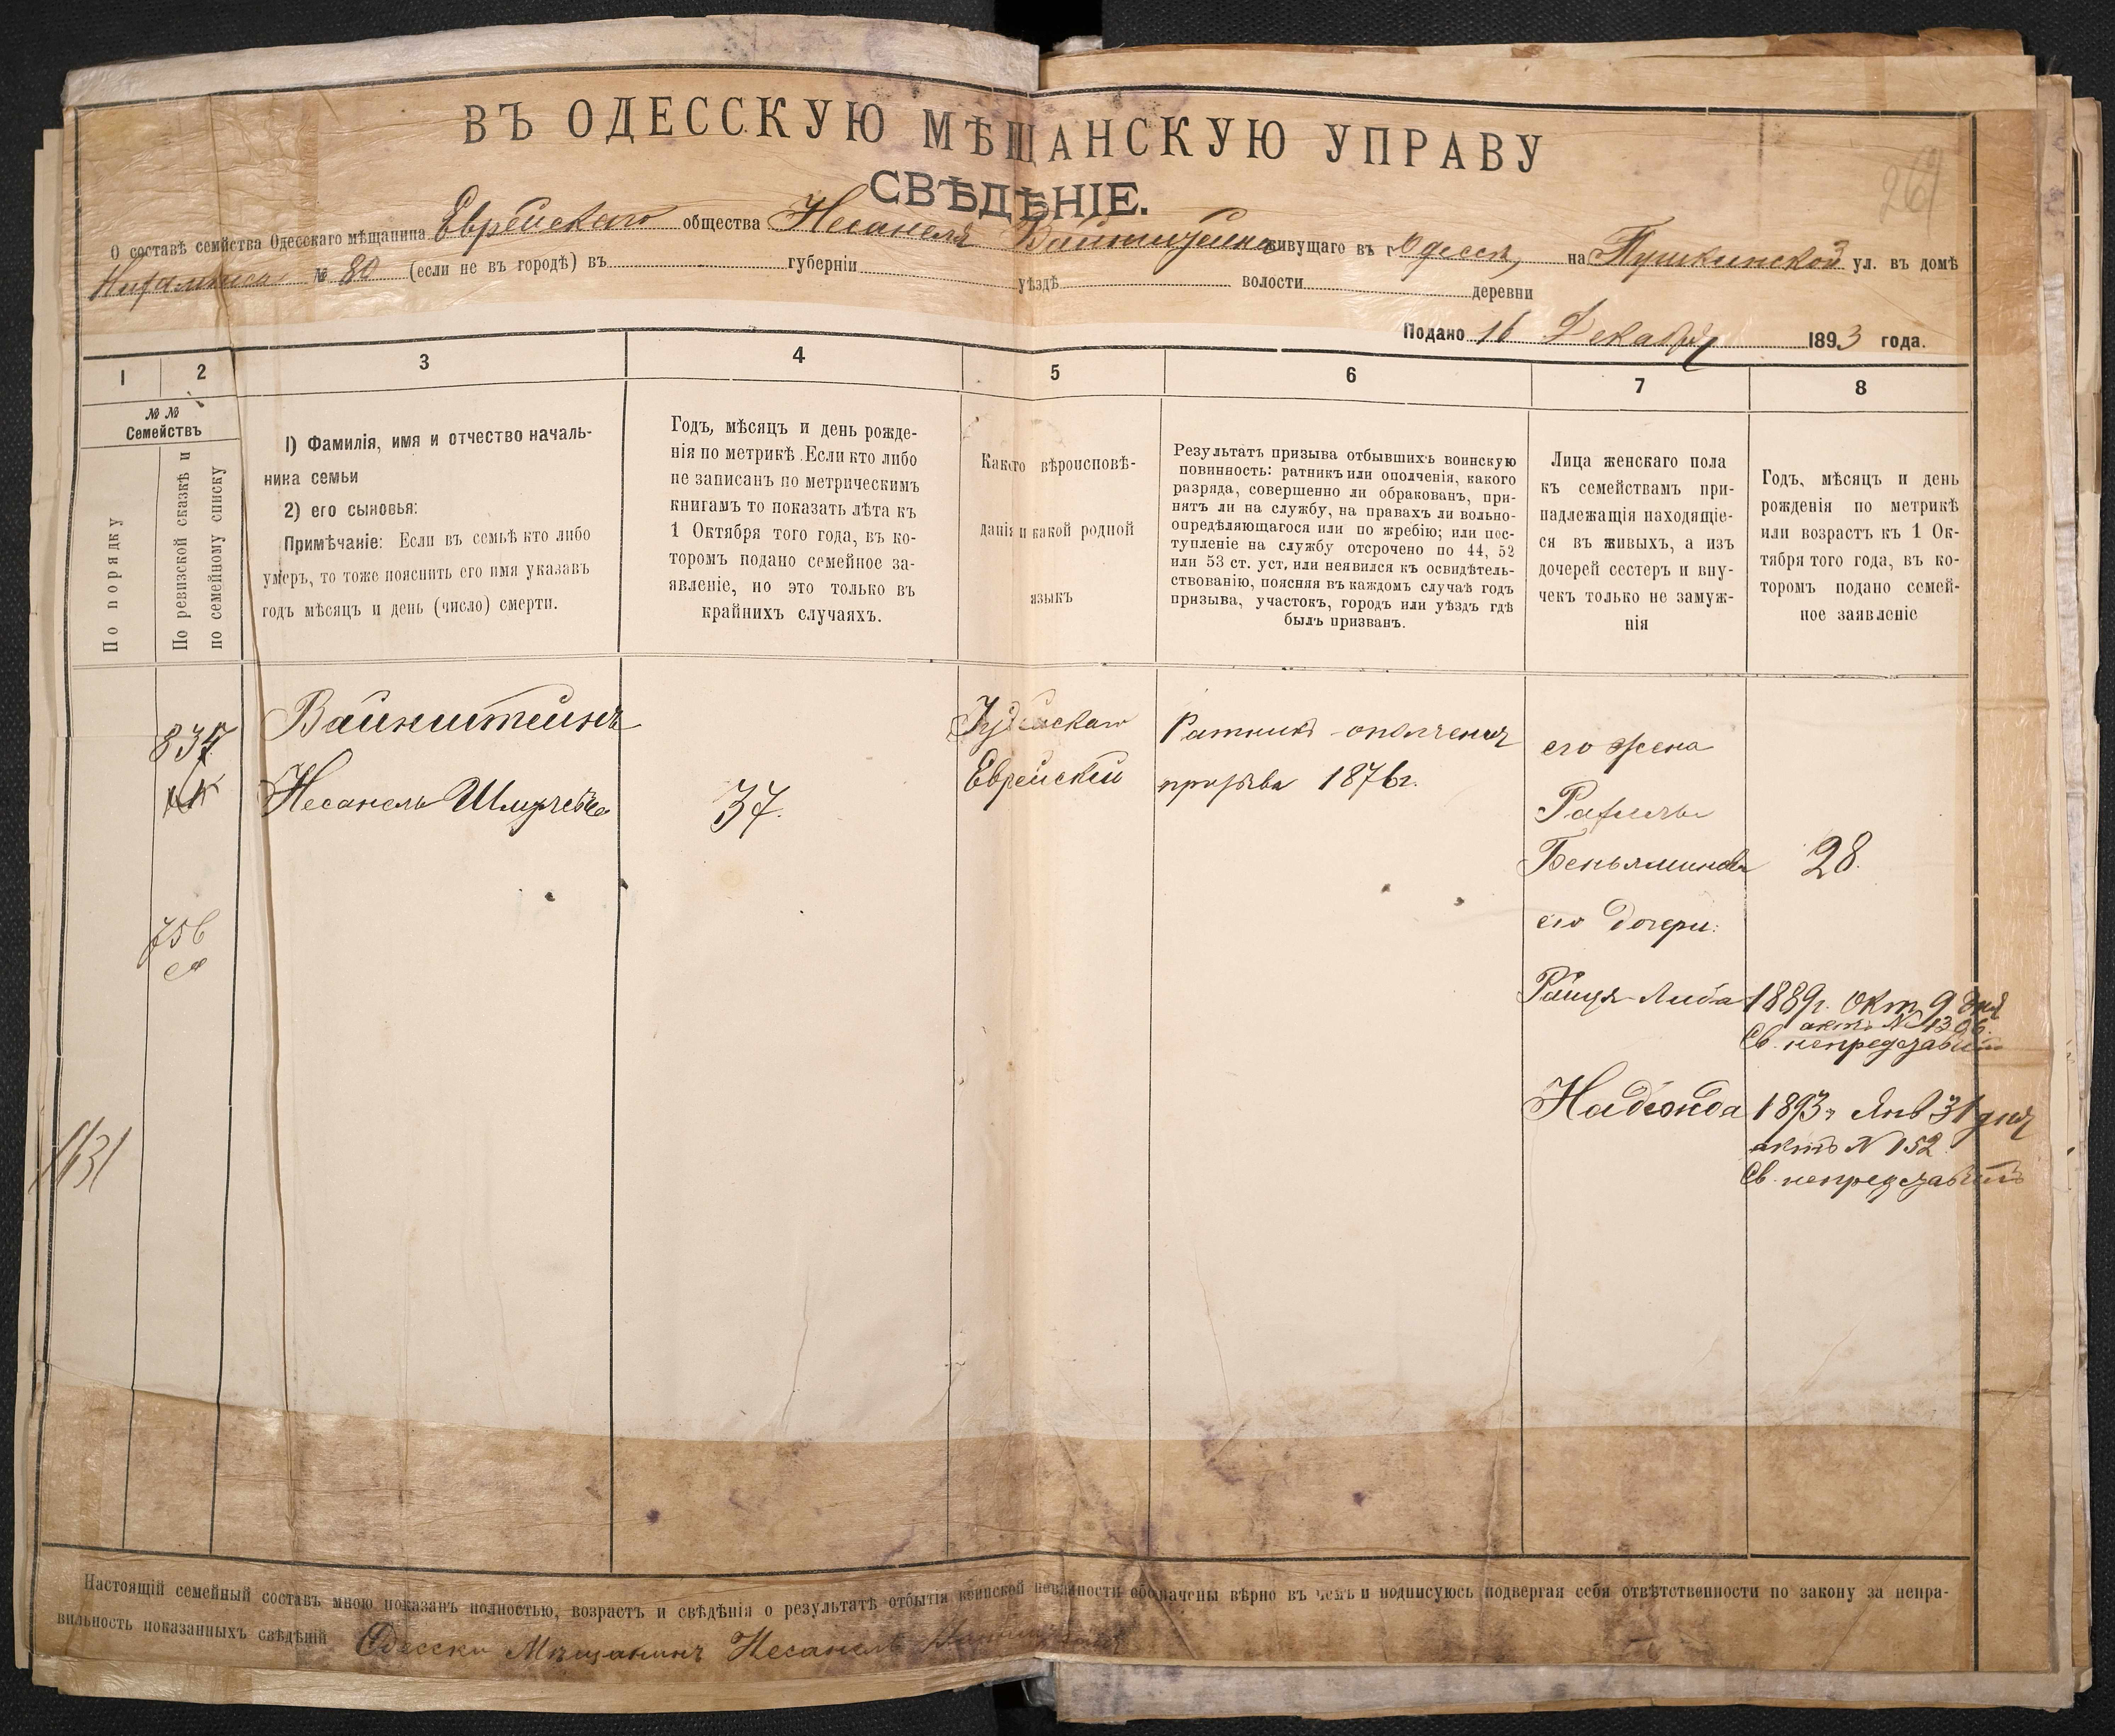 ВЪ ОДЕССКУЮ МѢЩАНСКУЮ УПРАВУ
СВѢДѢНІЕ.
261
О составѣ семйства Одесскаго мѣщанина Еврейскаго общества Несанеля Вайнштейна живущаго въ г. Одессѣ, на Пушкинской ул. въ домѣ
№ 80 (если не въ городѣ) въ губерніи уѣздѣ волости деревни
Подано 16 Декабря 1893 года.
1 2 3 4 5 6 7 8
№ №
Семействъ
По порядку
По ревизской сказкѣ и
по семейному списку
1) Фамилія, имя и отчество началь-
ника семьи
2) его сыновья:
Примѣчаніе: Если въ семьѣ кто либо
умеръ, то тоже пояснить его имя указавъ
годъ мѣсяцъ и день (число) смерти.
Годъ, мѣсяцъ и день рожде-
нія по метрикѣ. Если кто либо
не записанъ по метрическимъ
книгамъ то показать лѣта къ
1 Октября того года, въ ко-
торомъ подано семейное за-
явленіе, но это только въ
крайнихъ случаяхъ.
Какого вѣроисповѣ-
данія и какой родной
языкъ
Результатъ призыва отбывшихъ воинскую
повинность: ратникъ или ополченія, какого
разряда, совершенно ли обракованъ, при-
нятъ ли на службу, на правахъ ли вольно-
опредѣляющагося или по жребію; или пос-
тупленіе на службу отсрочено по 44, 52
или 53 ст. уст, или неявился къ освидѣтель-
ствованію, поясняя въ каждомъ случаѣ годъ
призыва, участокъ, городъ или уѣздъ гдѣ
былъ призванъ.
Лица женскаго пола
къ семействамъ при-
надлежащія находящіе-
ся въ живыхъ, а изъ
дочерей сестеръ и вну-
чекъ только не замуж-
нія
Годъ, мѣсяцъ и день
рожденія по метрикѣ
или возрастъ къ 1 Ок-
тября того года, въ ко-
торомъ подано семей-
ное заявленіе
Вайнштейнъ
Несанель
37.
Іудейскаго
Еврейскій
Ратникъ ополченія
призыва 1876г.
его жена
Рахиль
Беньяминова
28.
его дочери:
Райця-Либа
1889г. Окт 9 дня
актъ N 1396.
Св. непредставилъ
Надежда
1893г Янв 31 дня
актъ N 152
Св. непредставилъ
756
1131
Настоящій семейный составъ мною показанъ полностью, возрастъ и свѣдѣнія о результатѣ отбытія воинской повинности обозначены вѣрно въ чемъ и подписуюсь подвергая себя отвѣтственности по закону за непра-
вильность показанныхъ свѣдѣній Одесскій Мѣщанинъ Несанель Вайнштейнъ